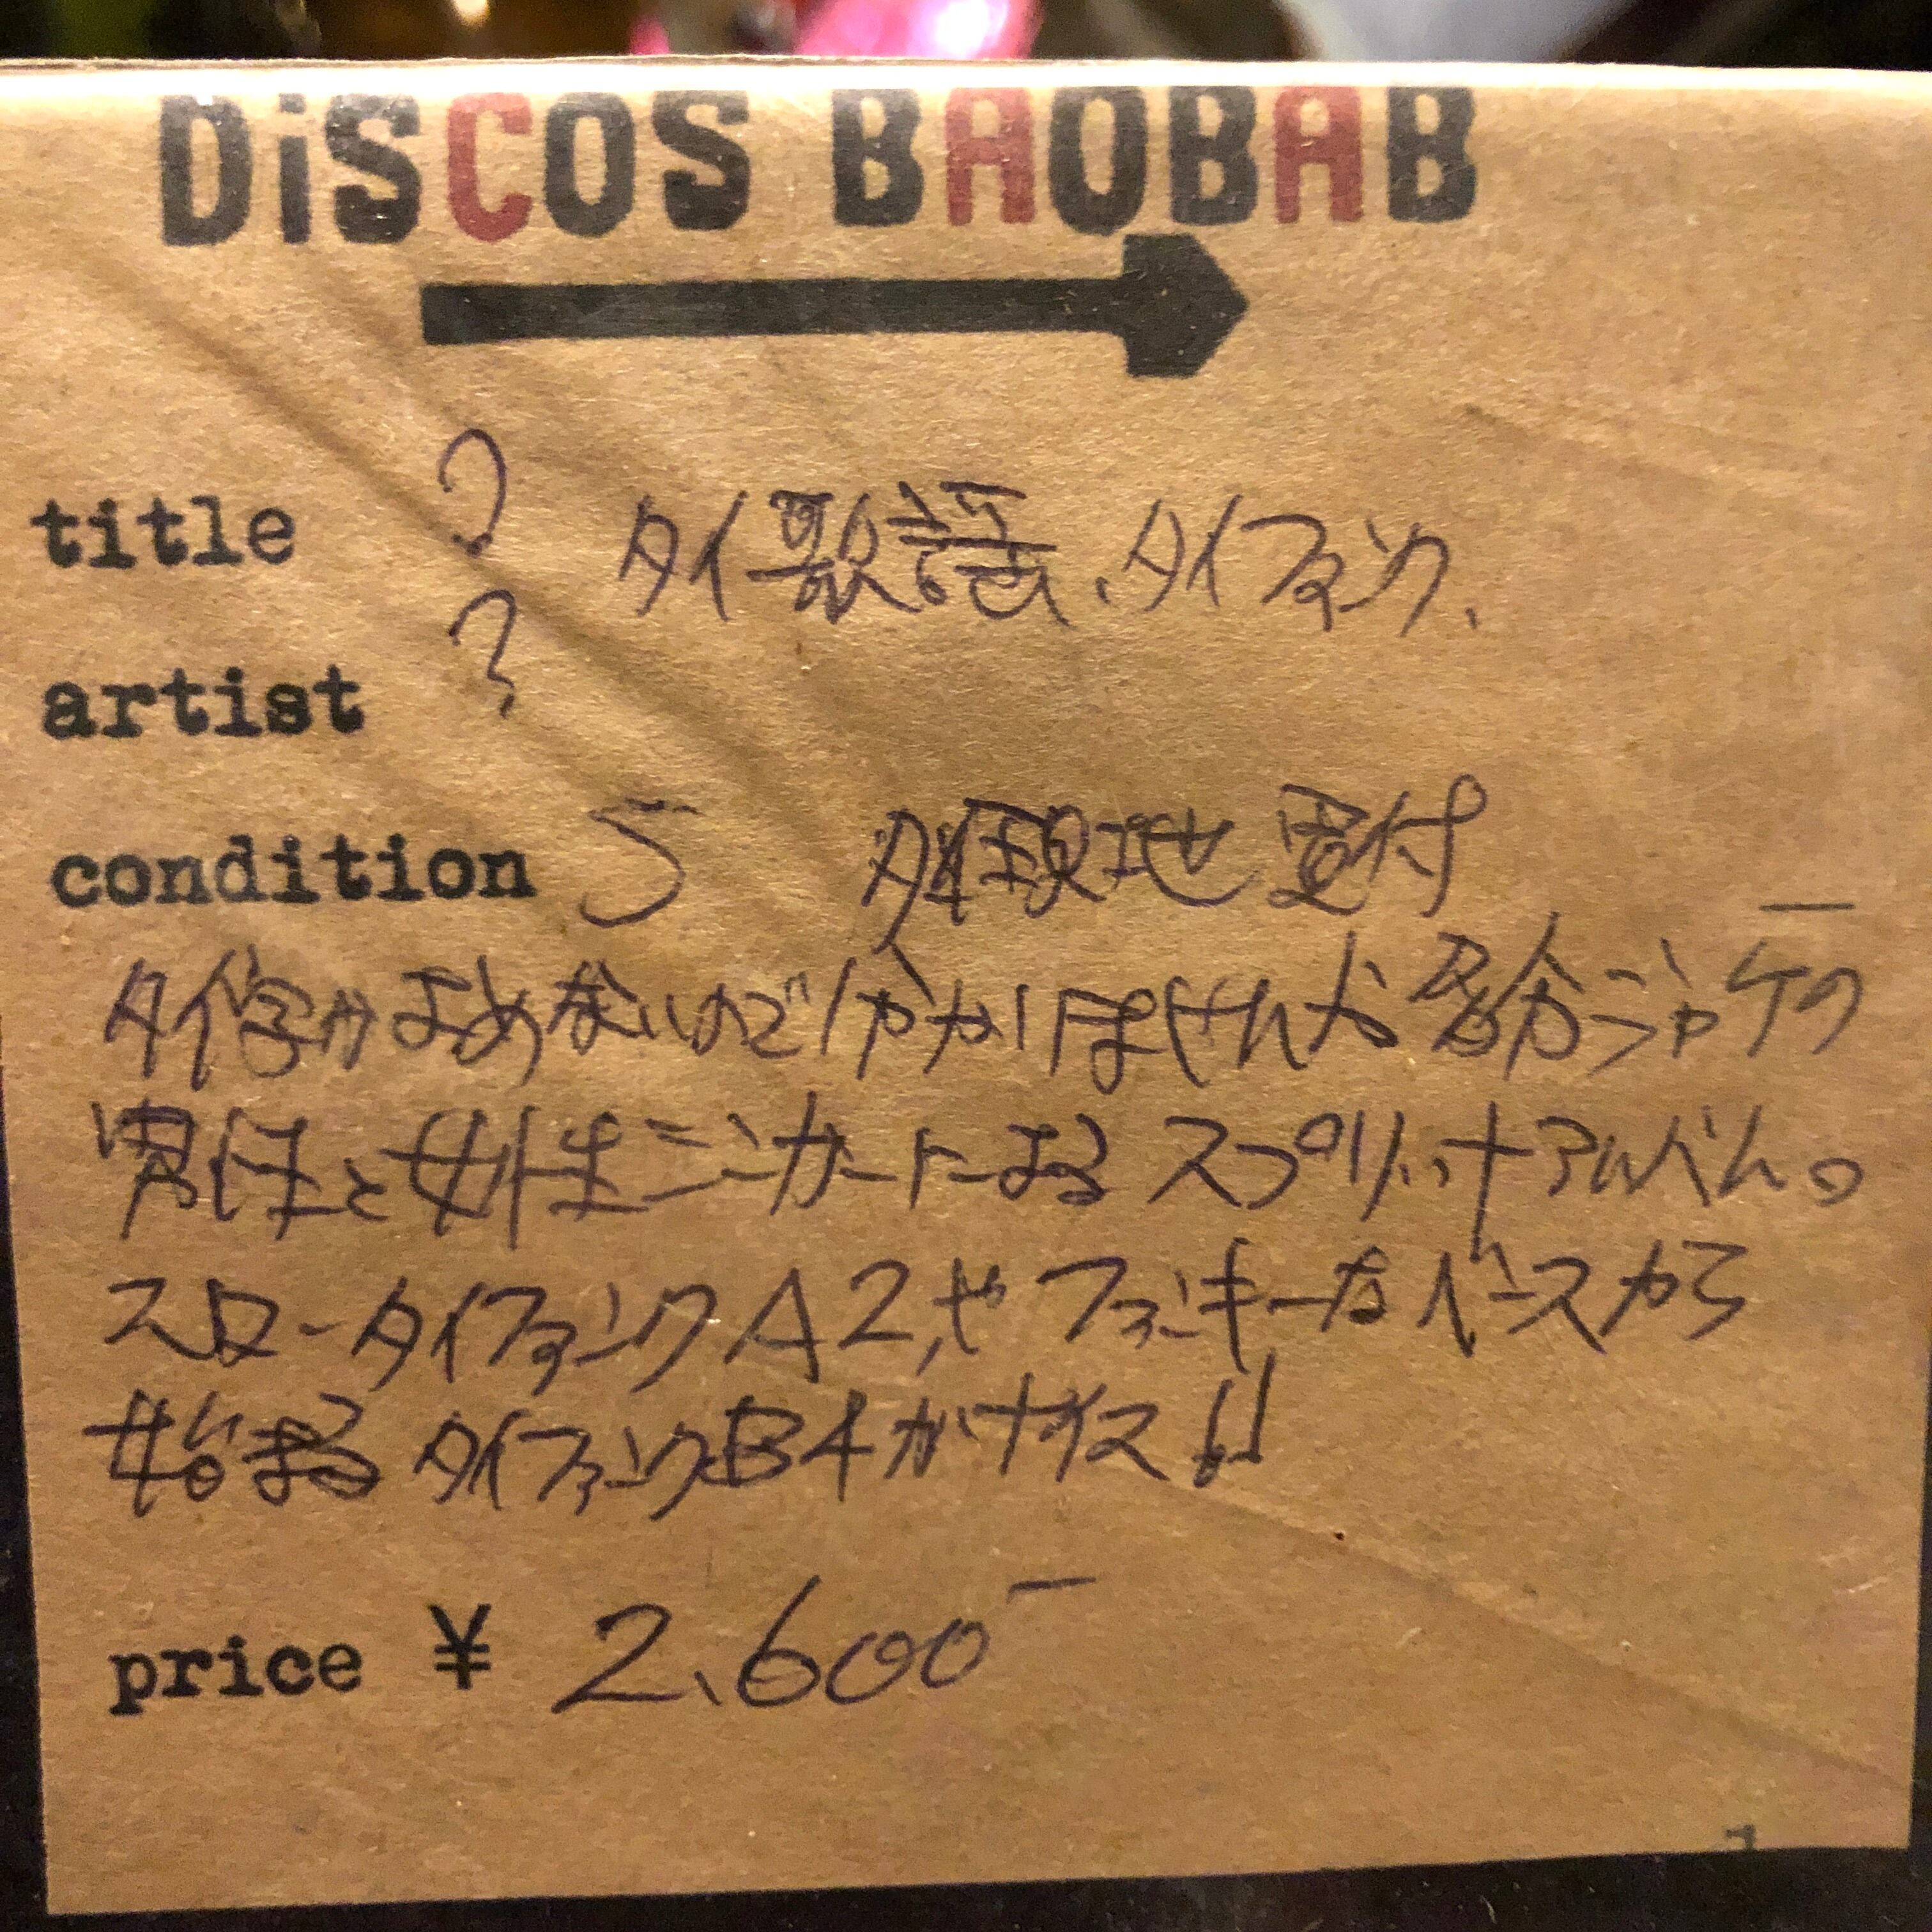 DiSCOS BAOBAB
title ? タイ歌謡、タイファンク、
artist ?
condition 5 タイ現地買付
タイ字がよめないので分かりませんが
男性と女性シンガーによるスプリットアルバム。
スロータイファンクA2,やファンキーなベースから
始まるタイファンクB4がナイス!!
price ¥ 2,600-